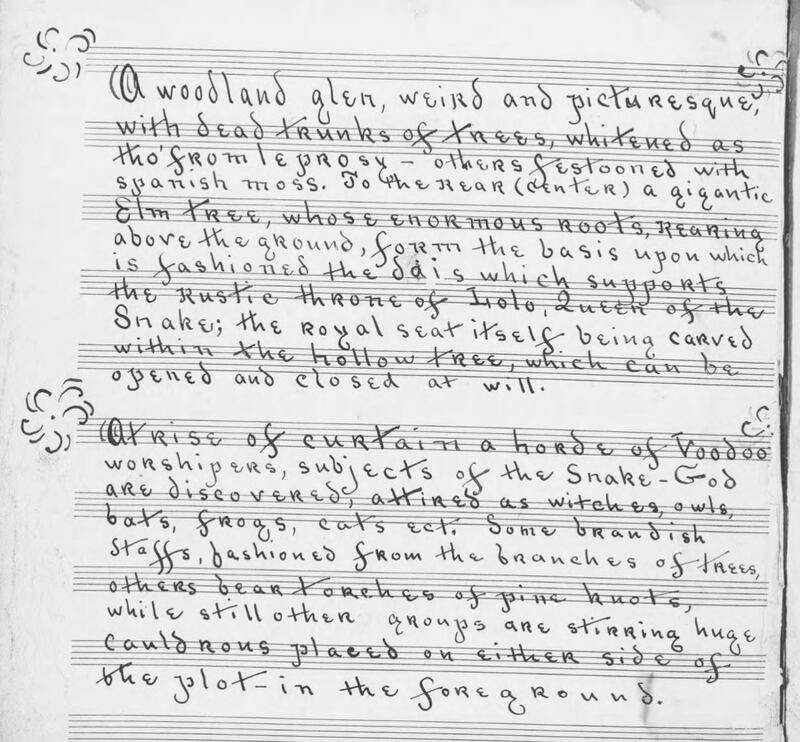 (A woodland glen, weird and picturesque,
with dead trunks of trees, whitened as
tho' from leprosy – others festooned with
spanish moss. To the rear (center) a gigantic
Elm tree, whose enormous roots, rearing
above the ground, form the basis upon which
is fashioned the dais which supports
the rustic throne of Lolo, Queen of the
Snake; the royal seat itself being carved
within the hollow tree, which can be
opened and closed at will.
(At rise of curtain a horde of Voodoo
worshipers, subjects of the Snake-God
are discovered, attired as witches, owls,
bats, frogs, cats ect. Some brandish
staffs, fashioned from the branches of trees,
others bear torches of pine knots,
while still other groups are stirring huge
cauldrons placed on either side of
the plot – in the foreground.